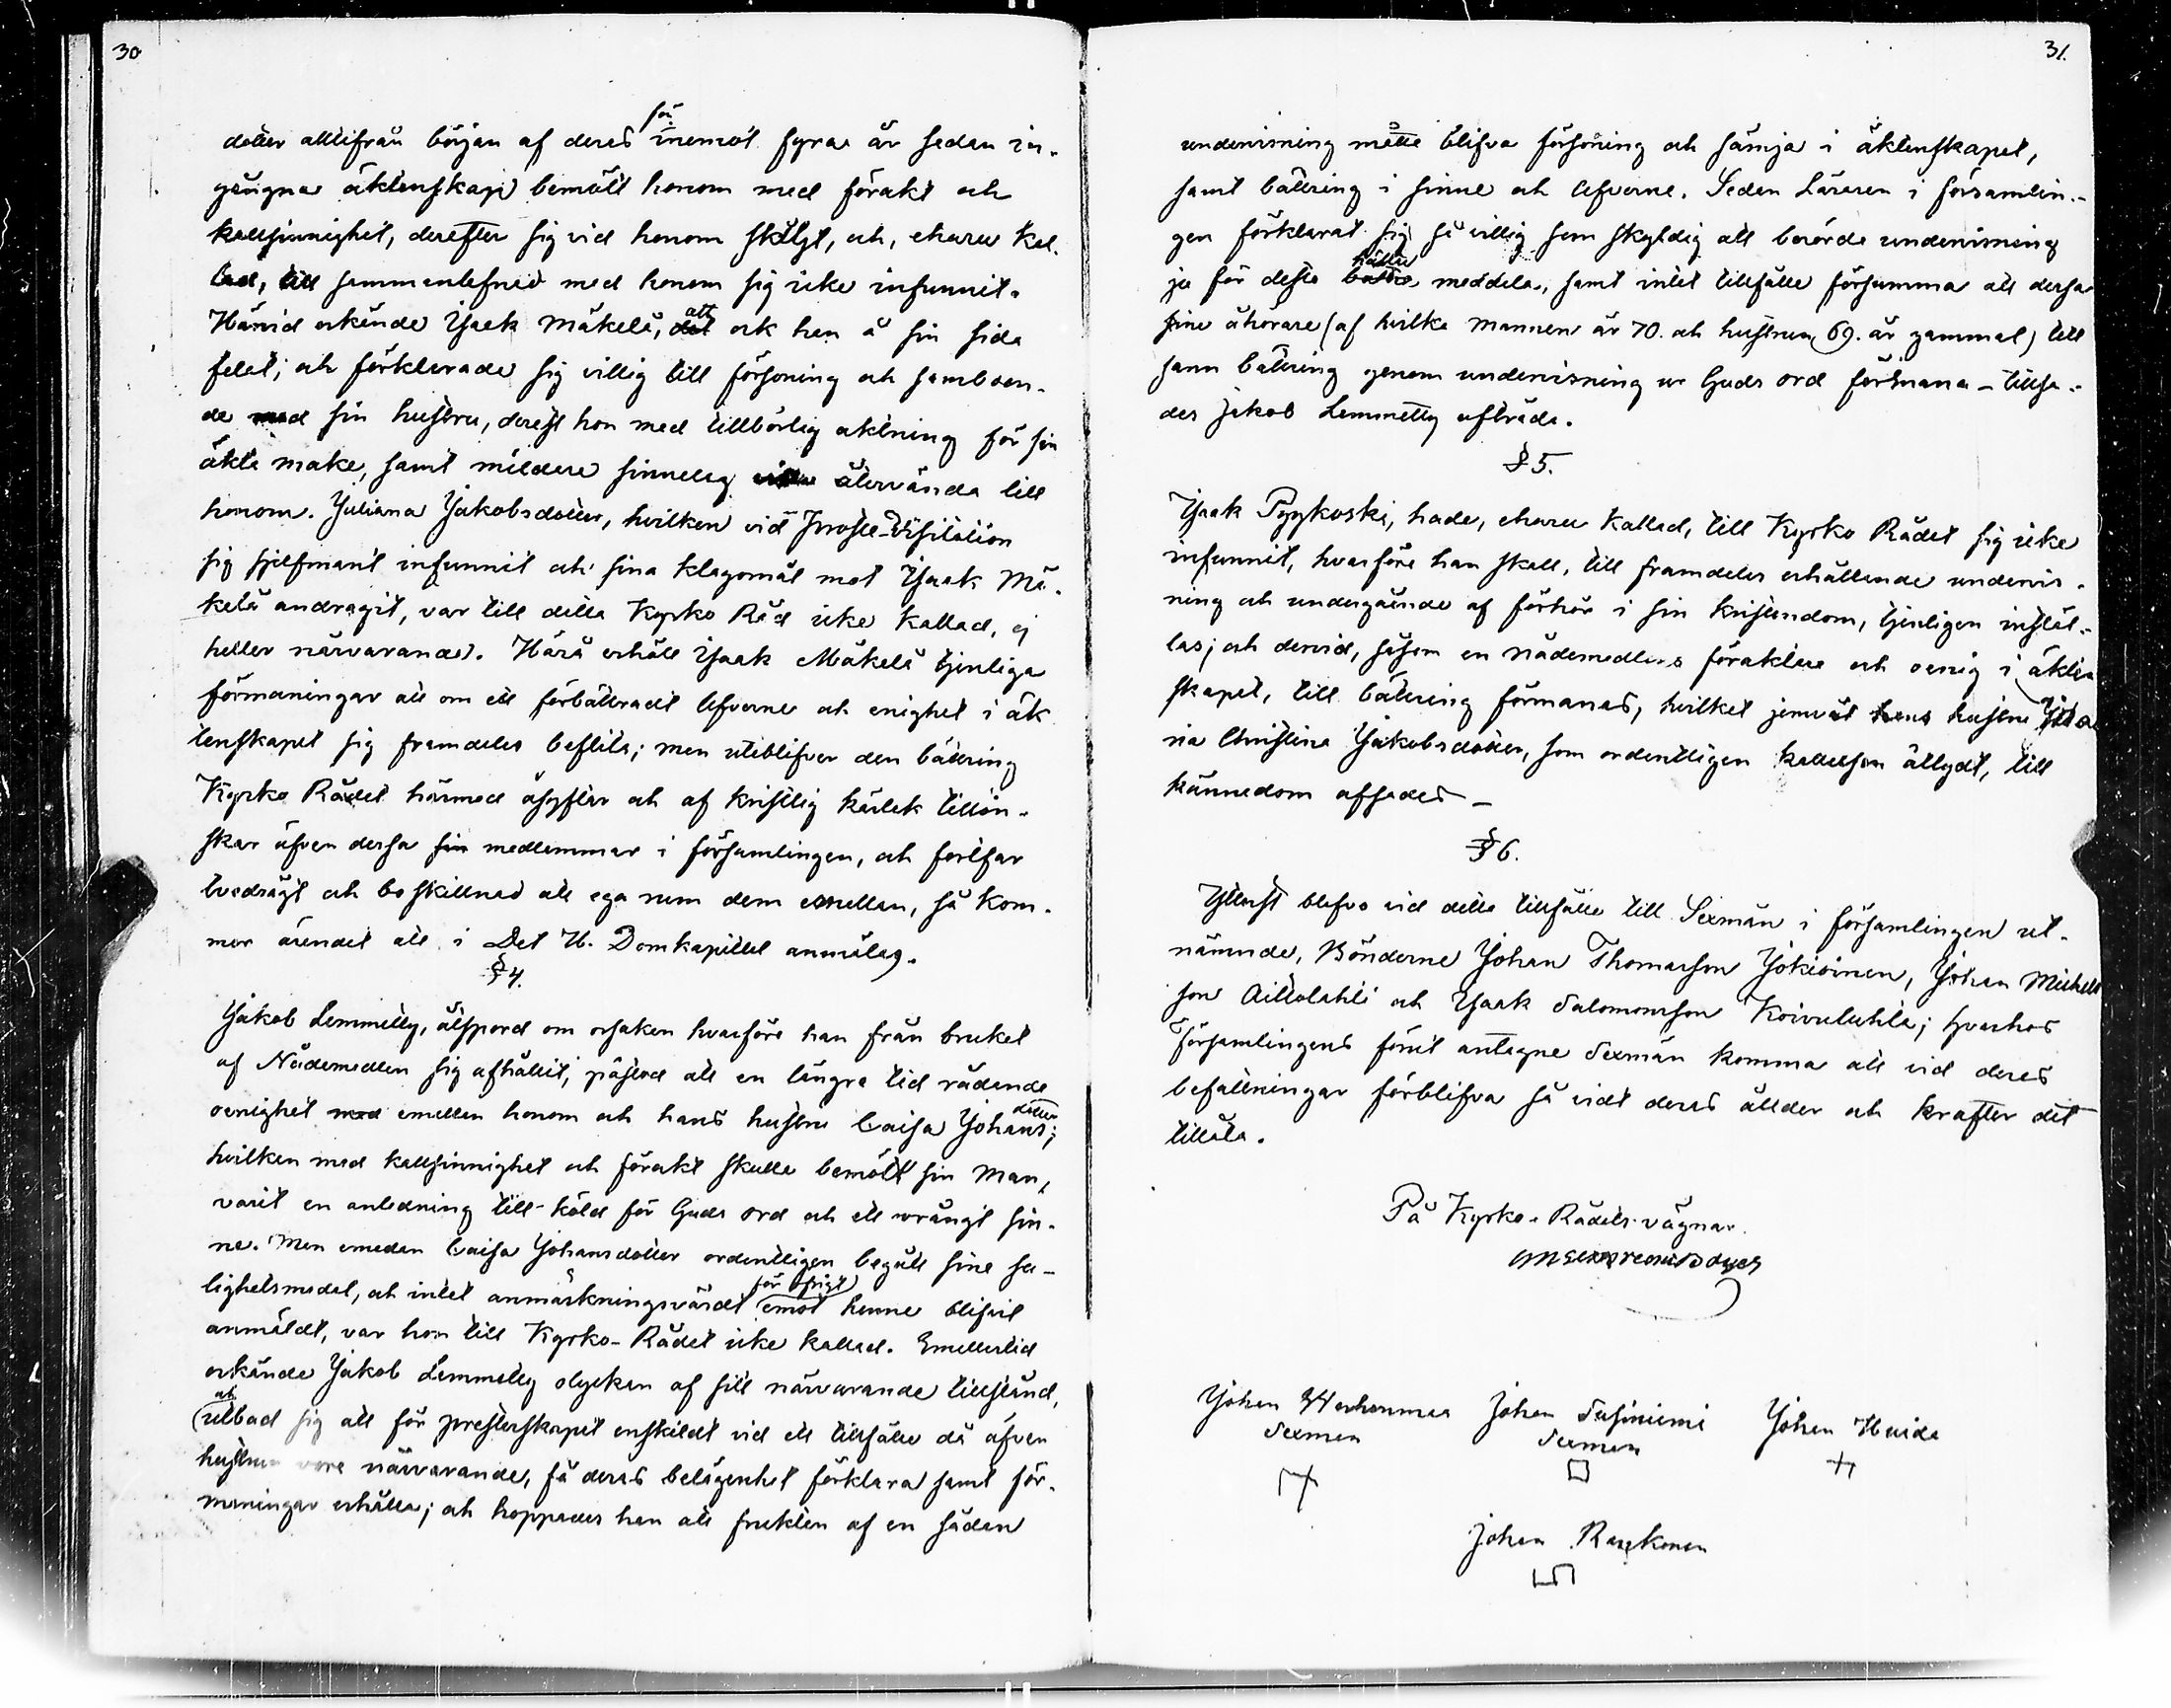 30
dotter alltifrån början af deras för inemot fyra år sedan in-
gångna äktenskap bemött honom med förakt och
kallsinnighet, derefter sig vid honom skiljt, och, ehuru kal-
lad, till sammanlefnad med honom sig icke infunnit.
Härvid erkände Isaak Mäkelä, att ock han å sin sida
felat; och förklarade sig villig till försoning och samboen-
de med sin hustru, derest hon med tillbörlig aktning för sin
äkta make, samt mildare sinnelag återvända till
honom. Juliana Jakobsdotter, hvilken vid Prosta-Visitation
sig sjelfmant infunnit och sina klagomål mot Isaak Mä-
kelä andragit, var till detta Kyrko Råd icke kallad, ej
heller närvarande. Härå erhöll Isaak Mäkelä tjenliga
förmaningar att om ett förbättradt lefverne och enighet i äk
tenskapet sig framdeles beflita; men uteblifver den bättring
Kyrko Rådet härmed åsyftar och af kristlig kärlek tillön-
skar äfven dessa sin medlemmar i församlingen, och fortfar
tvedrägt och boskillnad att ega rum dem emellan, så kom-
mer ärendet att i Det H. Domkapitlet anmälas.
§ 4.
Jakob Lemmetty, åtspord om orsaken hvarföre han från bruket
af Nådemedlen sig afhållit, påstod att en längre tid rådande
oenighet med emellan honom och hans hustru Caisa Johansdotter;
hvilken med kallsinnighet och förakt skulle bemött sin Man,
varit en anledning till köld för Guds ord och ett vrångt sin-
ne. Men emedan Caisa Johansdotter ordentligen begått sine sa-
lighetsmedel, och intet anmärkningsvärdt för öfrigt emot henne blifvit
anmäldt, var hon till Kyrko-Rådet icke kallad. Emellertid
erkände Jakob Lemmetty olyckan af sitt närvarande tillstånd,
och utbad sig att för presterskapet enskildt vid ett tillfälle då äfven
hustrun vore närvarande, få deras belägenhet förklara samt för-
maningar erhålla; och hoppades han att frukten af en sådan
31.
undervisning måtte blifva försoning och sämja i äktenskapet,
samt bättring i sinne och lefverne. Sedan Läraren i församlin-
gen förklarat sig så villig som skyldig att berörde undervisning
ju för desto hällre meddela, samt intet tillfälle försumma att dessa
sine åhörare (af hvilka mannen är 70. och hustrun 69. år gammal) till
sann bättring genom undervisning ur Guds ord förmana - tillsa-
des Jakob Lemmetty afträda.
§ 5.
Isaak Pyykoski, hade, ehuru kallad, till Kyrko Rådet sig icke
infunnit, hvarföre han skall, till framdeles erhållande undervis-
ning och undergående af förhör i sin kristendom, tjenligen inställ-
las; och dervid, såsom en nådemedlens föraktare och oenig i äkten
skapet, till bättring förmanas, hvilket jemväl hans hustru
ria Christina Jakobsdotter, som ordentligen kallelsen åtlydt, till
kännedom afsades -
§ 6.
Ytterst blefvo vid detta tillfälle till Sexmän i församlingen ut-
nämnde, Bönderne Johan Thomasson Jokioinen, Johan Michels
son Aittolahti och Isaak Salomonsson Koivulahti; hvarhos
församlingens förut antagne Sexmän komma att vid deras
befattningar förblifva så vidt deras ålder och krafter det
tillåta.
På Kyrko-Rådets vägnar.
Johan
Sexman
Johan Susiniemi
Sexman
Johan Huida
Johan Raukonen